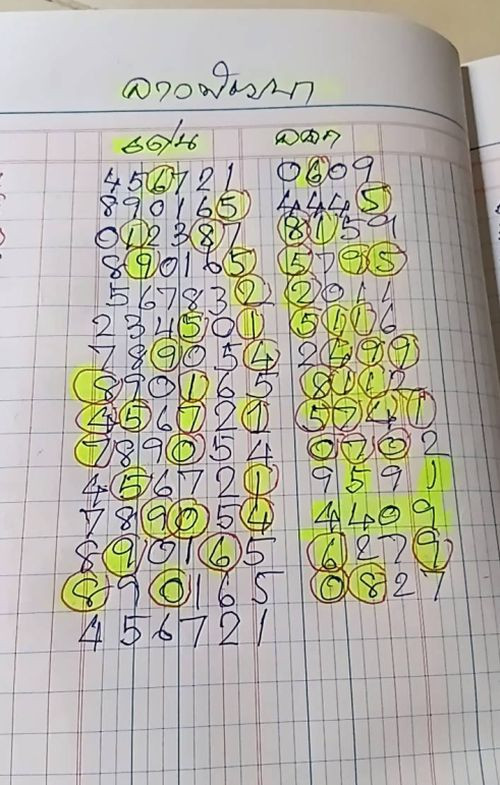 ลาวพัฒนา
เด่น ออก
456721 0609
890165 4445
012387 8159
890165 5795
567832 2011
234501 5116
789054 2499
890165 8112
456721 5741
789054 0702
456721 9591
789054 4409
890165 6279
890165 0827
456721